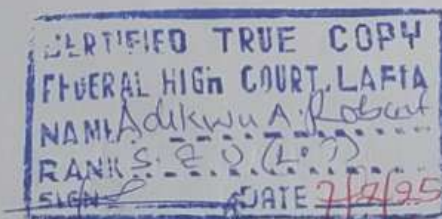 CERTIFIED TRUE COPY
FEDERAL HIGH COURT, LAFIA
NAME Adikwu A. Robert
RANK S. E. O. (L.
SIGN DATE 7/7/25